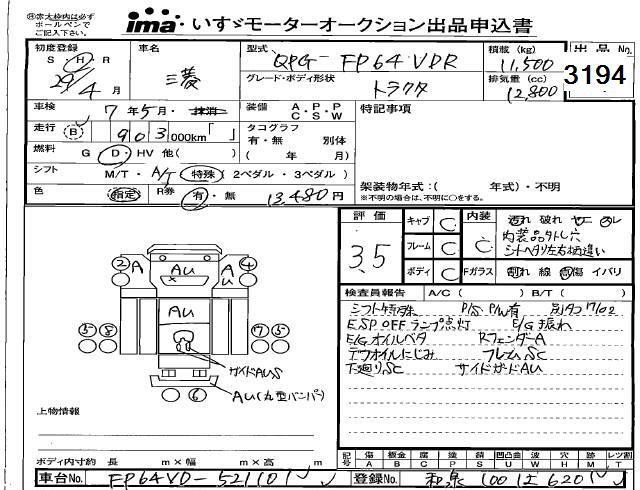 ㊟赤太枠内は必ず
ボールペンで
ご記入下さい。
ima いすゞモーターオークション出品申込書
初度登録
S H R
29/4 月
車名
三菱
型式
QPG-FP64VDR
グレード・ボディ形状
トラクタ
積載 (kg)
11,500
排気量 (cc)
12,800
出品No.
3194
車検 7年5月・抹消
装備 A・P・P C・S・W
特記事項
走行 B 903,000km「 」
タコグラフ
有・無 別体
( 年 月)
燃料 G D・HV 他( )
シフト M/T・A/T 特殊 ( 2ペダル・3ペダル )
色 指定 R券 有・無 13,480円
架装物年式:( 年式)・不明
※不明の場合は、不明に〇をする。
評価
3.5
キャブ C
フレーム C
ボディ C
内装 C
汚れ 破れ ヤニ ヘコレ
内装品外し穴
シートヘタリ左右柄違い
Fガラス 割れ 線 傷 イバリ
検査員報告 A/C ( ) B/T ( )
シフト特殊 P/S P/W有 別タコ17/02
ESP OFFランプ点灯 E/G振れ
E/Gオイルベタ RフェンダーA
デフオイルにじみ フレームSC
下廻りSC サイドガードAU
② A AU AU ④
AU
⑤ ⑧ ⑦ ⑤
サイドAUS
⑥ AU(丸型バンパ)
上物情報
ボディ内寸約 長 m×幅 m×高 m
記号 傷 A 板金 B 腐 C 塗 P 錆 S 凹凸曲 U 波 W 穴 H 跡 M レツ割 T
車台No. FP64VD-521101
登録No. 和泉 100 は 620